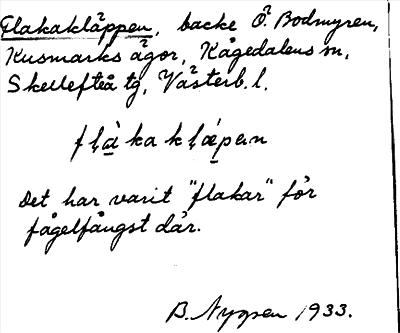 Flakakläppen, backe Ö. Bodmyren,
Kusmarks ägor, Kågedalens sn,
Skellefteå tg, Västerb. l.
fḷà̱ka kḷǽpən
Det har varit "flakar" för
fågelfångst där.
B. Nygren 1933.